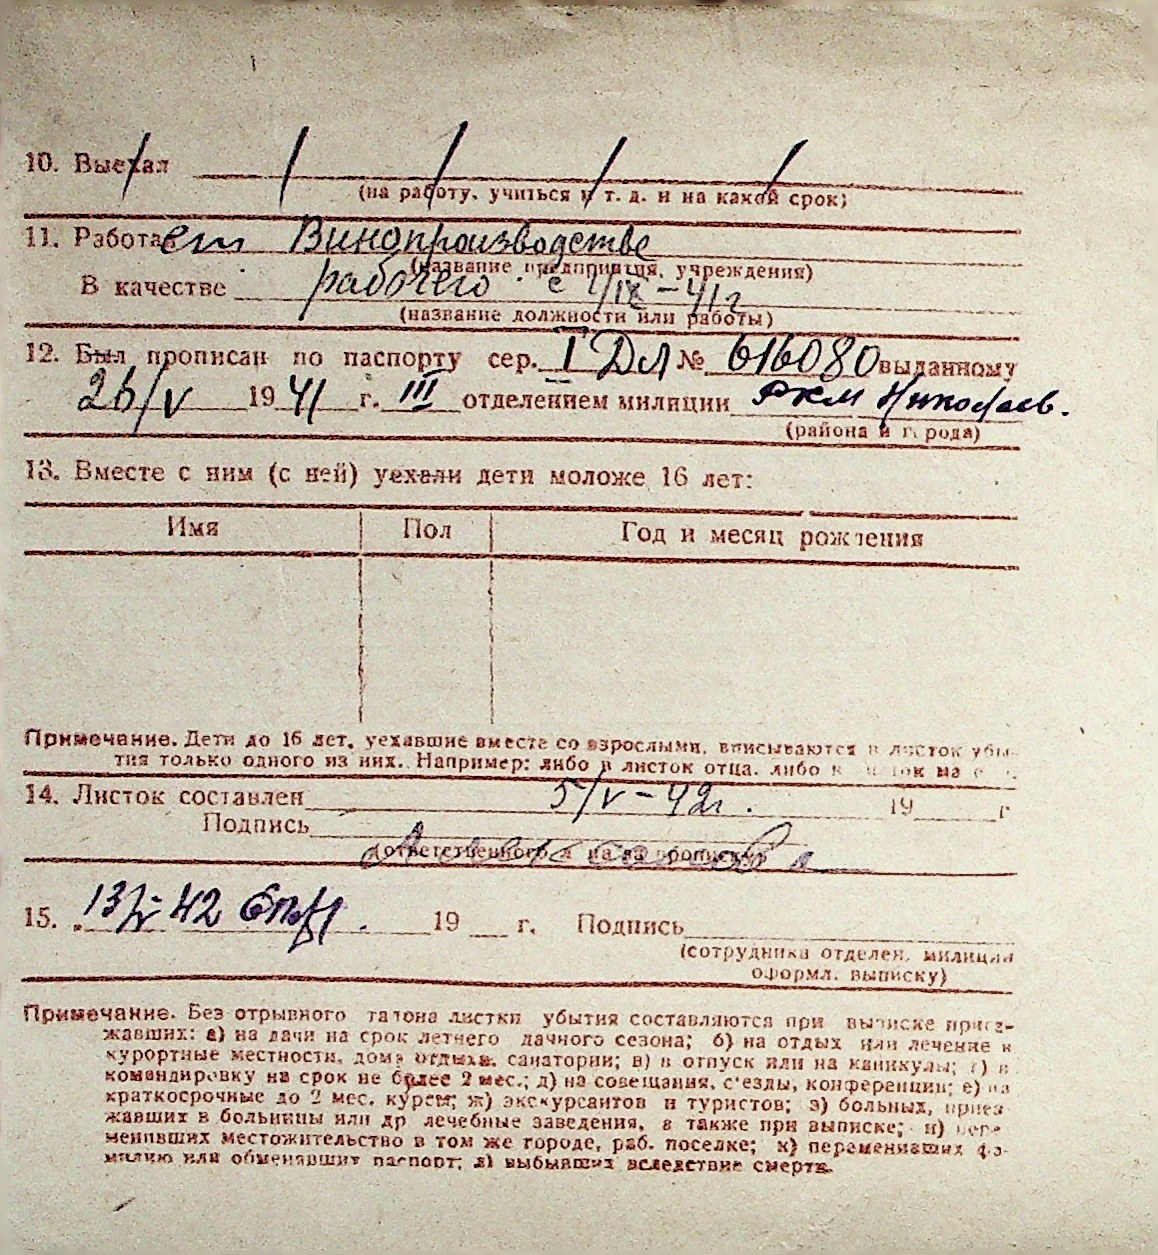 10. Выехал
(на работу, учиться и т. д. и на какой срок)
11. Работает Винопроизводстве
(название предприятия, учреждения)
В качестве рабочего с 1/IX-41г
(название должности или работы)
12. Был прописан по паспорту сер. I ДЛ № 616080 выданному
26/V 1941 г. III отделением милиции РКМ Николаев.
(района и города)
13. Вместе с ним (с ней) уехали дети моложе 16 лет:
Имя Пол Год и месяц рождения
Примечание. Дети до 16 лет, уехавшие вместе со взрослыми, вписываются в листок убы-
тия только одного из них. Например: либо в листок отца, либо в
14. Листок составлен 5/V-42г. 19 г
Подпись
(ответственного за прописку)
15. 13/V-42 19 г. Подпись
(сотрудника отделен. милиции
оформл. выписку)
Примечание. Без отрывного талона листки убытия составляются при выписке приез-
жавших: а) на дачи на срок летнего дачного сезона; б) на отдых или лечение в
курортные местности, дома отдыха, санатории; в) в отпуск или на каникулы; г) в
командировку на срок не более 2 мес.; д) на совещания, с'езды, конференции; е) на
краткосрочные до 2 мес. курсы; ж) экскурсантов и туристов; з) больных, приез-
жавших в больницы или др лечебные заведения, а также при выписке; и) пере-
менивших местожительство в том же городе, раб. поселке; к) переменивших фа-
милию или обменявших паспорт; л) выбывших вследствие смерти.